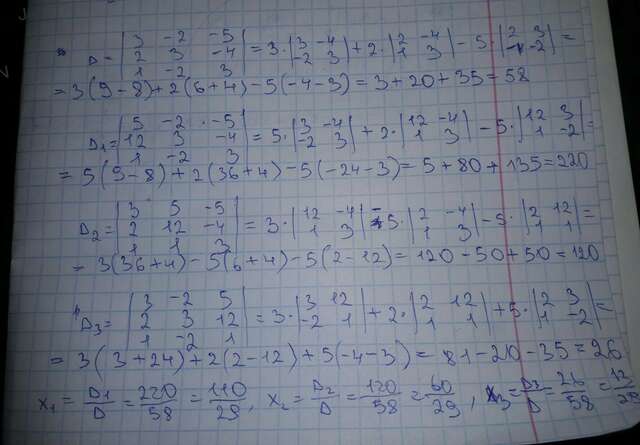 D = |3 -2 -5; 2 3 -4; 1 -2 3| = 3·|3 -4; -2 3| + 2·|2 -4; 1 3| - 5·|2 3; 1 -2| =
= 3(9-8)+2(6+4)-5(-4-3) = 3+20+35=58
D₁= |5 -2 -5; 12 3 -4; 1 -2 3| = 5·|3 -4; -2 3| + 2·|12 -4; 1 3| - 5·|12 3; 1 -2| =
= 5(9-8)+2(36+4)-5(-24-3)= 5+80+135=220
D₂= |3 5 -5; 2 12 -4; 1 1 3| = 3·|12 -4; 1 3| - 5·|2 -4; 1 3| - 5·|2 12; 1 1| =
= 3(36+4)-5(6+4)-5(2-12)= 120-50+50=120
D₃= |3 -2 5; 2 3 12; 1 -2 1| = 3·|3 12; -2 1| + 2·|2 12; 1 1| + 5·|2 3; 1 -2| =
= 3(3+24)+2(2-12)+5(-4-3)= 81-20-35=26
x₁ = D₁/D = 220/58 = 110/29, x₂ = D₂/D = 120/58 = 60/29, x₃ = D₃/D = 26/58 = 13/29